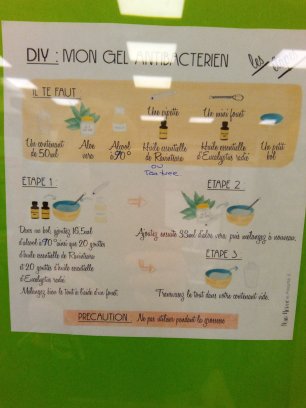 DIY : MON GEL ANTIBACTERIEN
IL TE FAUT
Une pipette
Un mini fouet
Un contenant
de 50ml
Aloe
vera
Alcool
à 70°
Huile essentielle
de Ravintsara
Huile essentielle
d'Eucalyptus radié
Un petit
bol
ou
Tea tree
ETAPE 1 :
Dans un bol, ajoutez 16,5ml
d'alcool à 70° ainsi que 20 gouttes
d'huile essentielle de Ravintsara
et 20 gouttes d'huile essentielle
d'Eucalyptus radié.
Mélangez bien le tout à l'aide d'un fouet.
ETAPE 2 :
Ajoutez ensuite 33ml d'aloe vera puis mélangez à nouveau.
ETAPE 3 :
Transvasez le tout dans votre contenant vide.
PRECAUTION : Ne pas utiliser pendant la grossesse